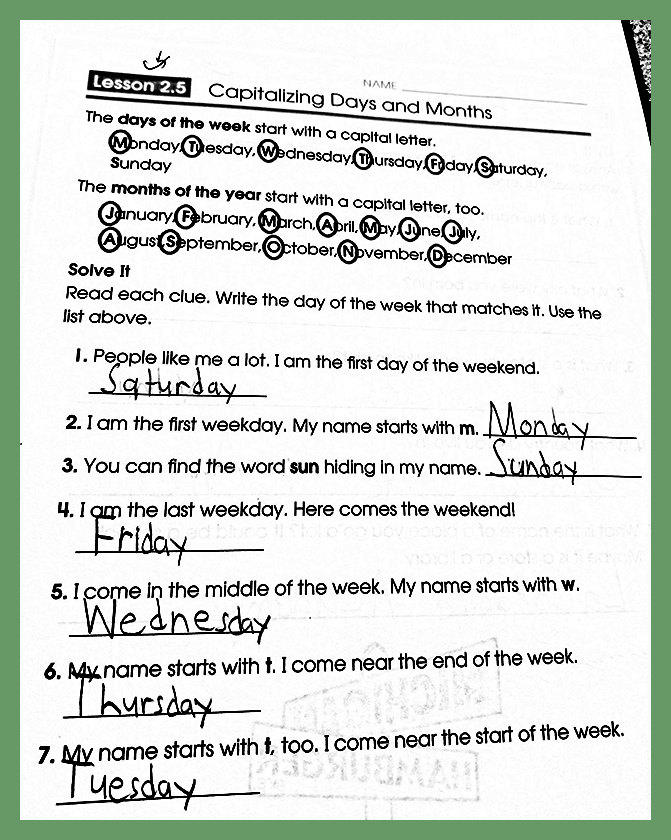 NAME
Lesson 2.5 Capitalizing Days and Months
The days of the week start with a capital letter.
Monday, Tuesday, Wednesday, Thursday, Friday, Saturday,
Sunday
The months of the year start with a capital letter, too.
January, February, March, April, May, June, July,
August, September, October, November, December
Solve It
Read each clue. Write the day of the week that matches it. Use the
list above.
1. People like me a lot. I am the first day of the weekend.
Saturday
2. I am the first weekday. My name starts with m. Monday
3. You can find the word sun hiding in my name. Sunday
4. I am the last weekday. Here comes the weekend!
Friday
5. I come in the middle of the week. My name starts with w.
Wednesday
6. My name starts with t. I come near the end of the week.
Thursday
7. My name starts with t, too. I come near the start of the week.
Tuesday